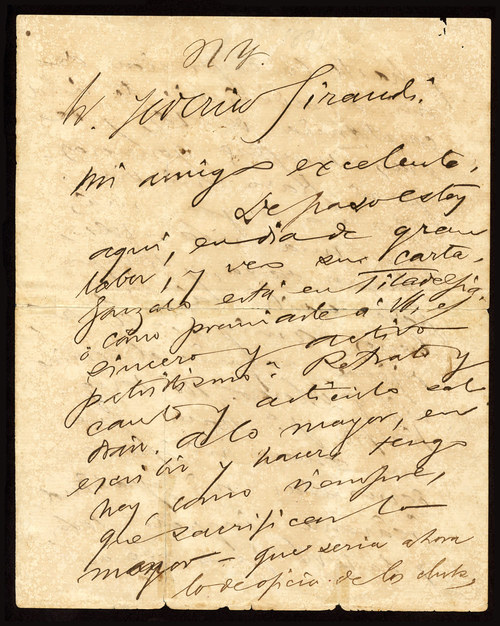 N.Y.
Sr. Federico Giraudi.
Mi amigo excelente,
De paso estoy
aquí, en día de gran
labor, y veo su carta.
Gonzalo está en Filadelfia.
¿Cómo premiarle á Vd. el
sincero y activo
patriotismo? Retrato y
canto y artículo sal
drán. A lo mayor, en
escribir y hacer tengo
hoy, como siempre,
que sacrificar lo
mayor – que sería ahora
lo de oficio de los clubs,